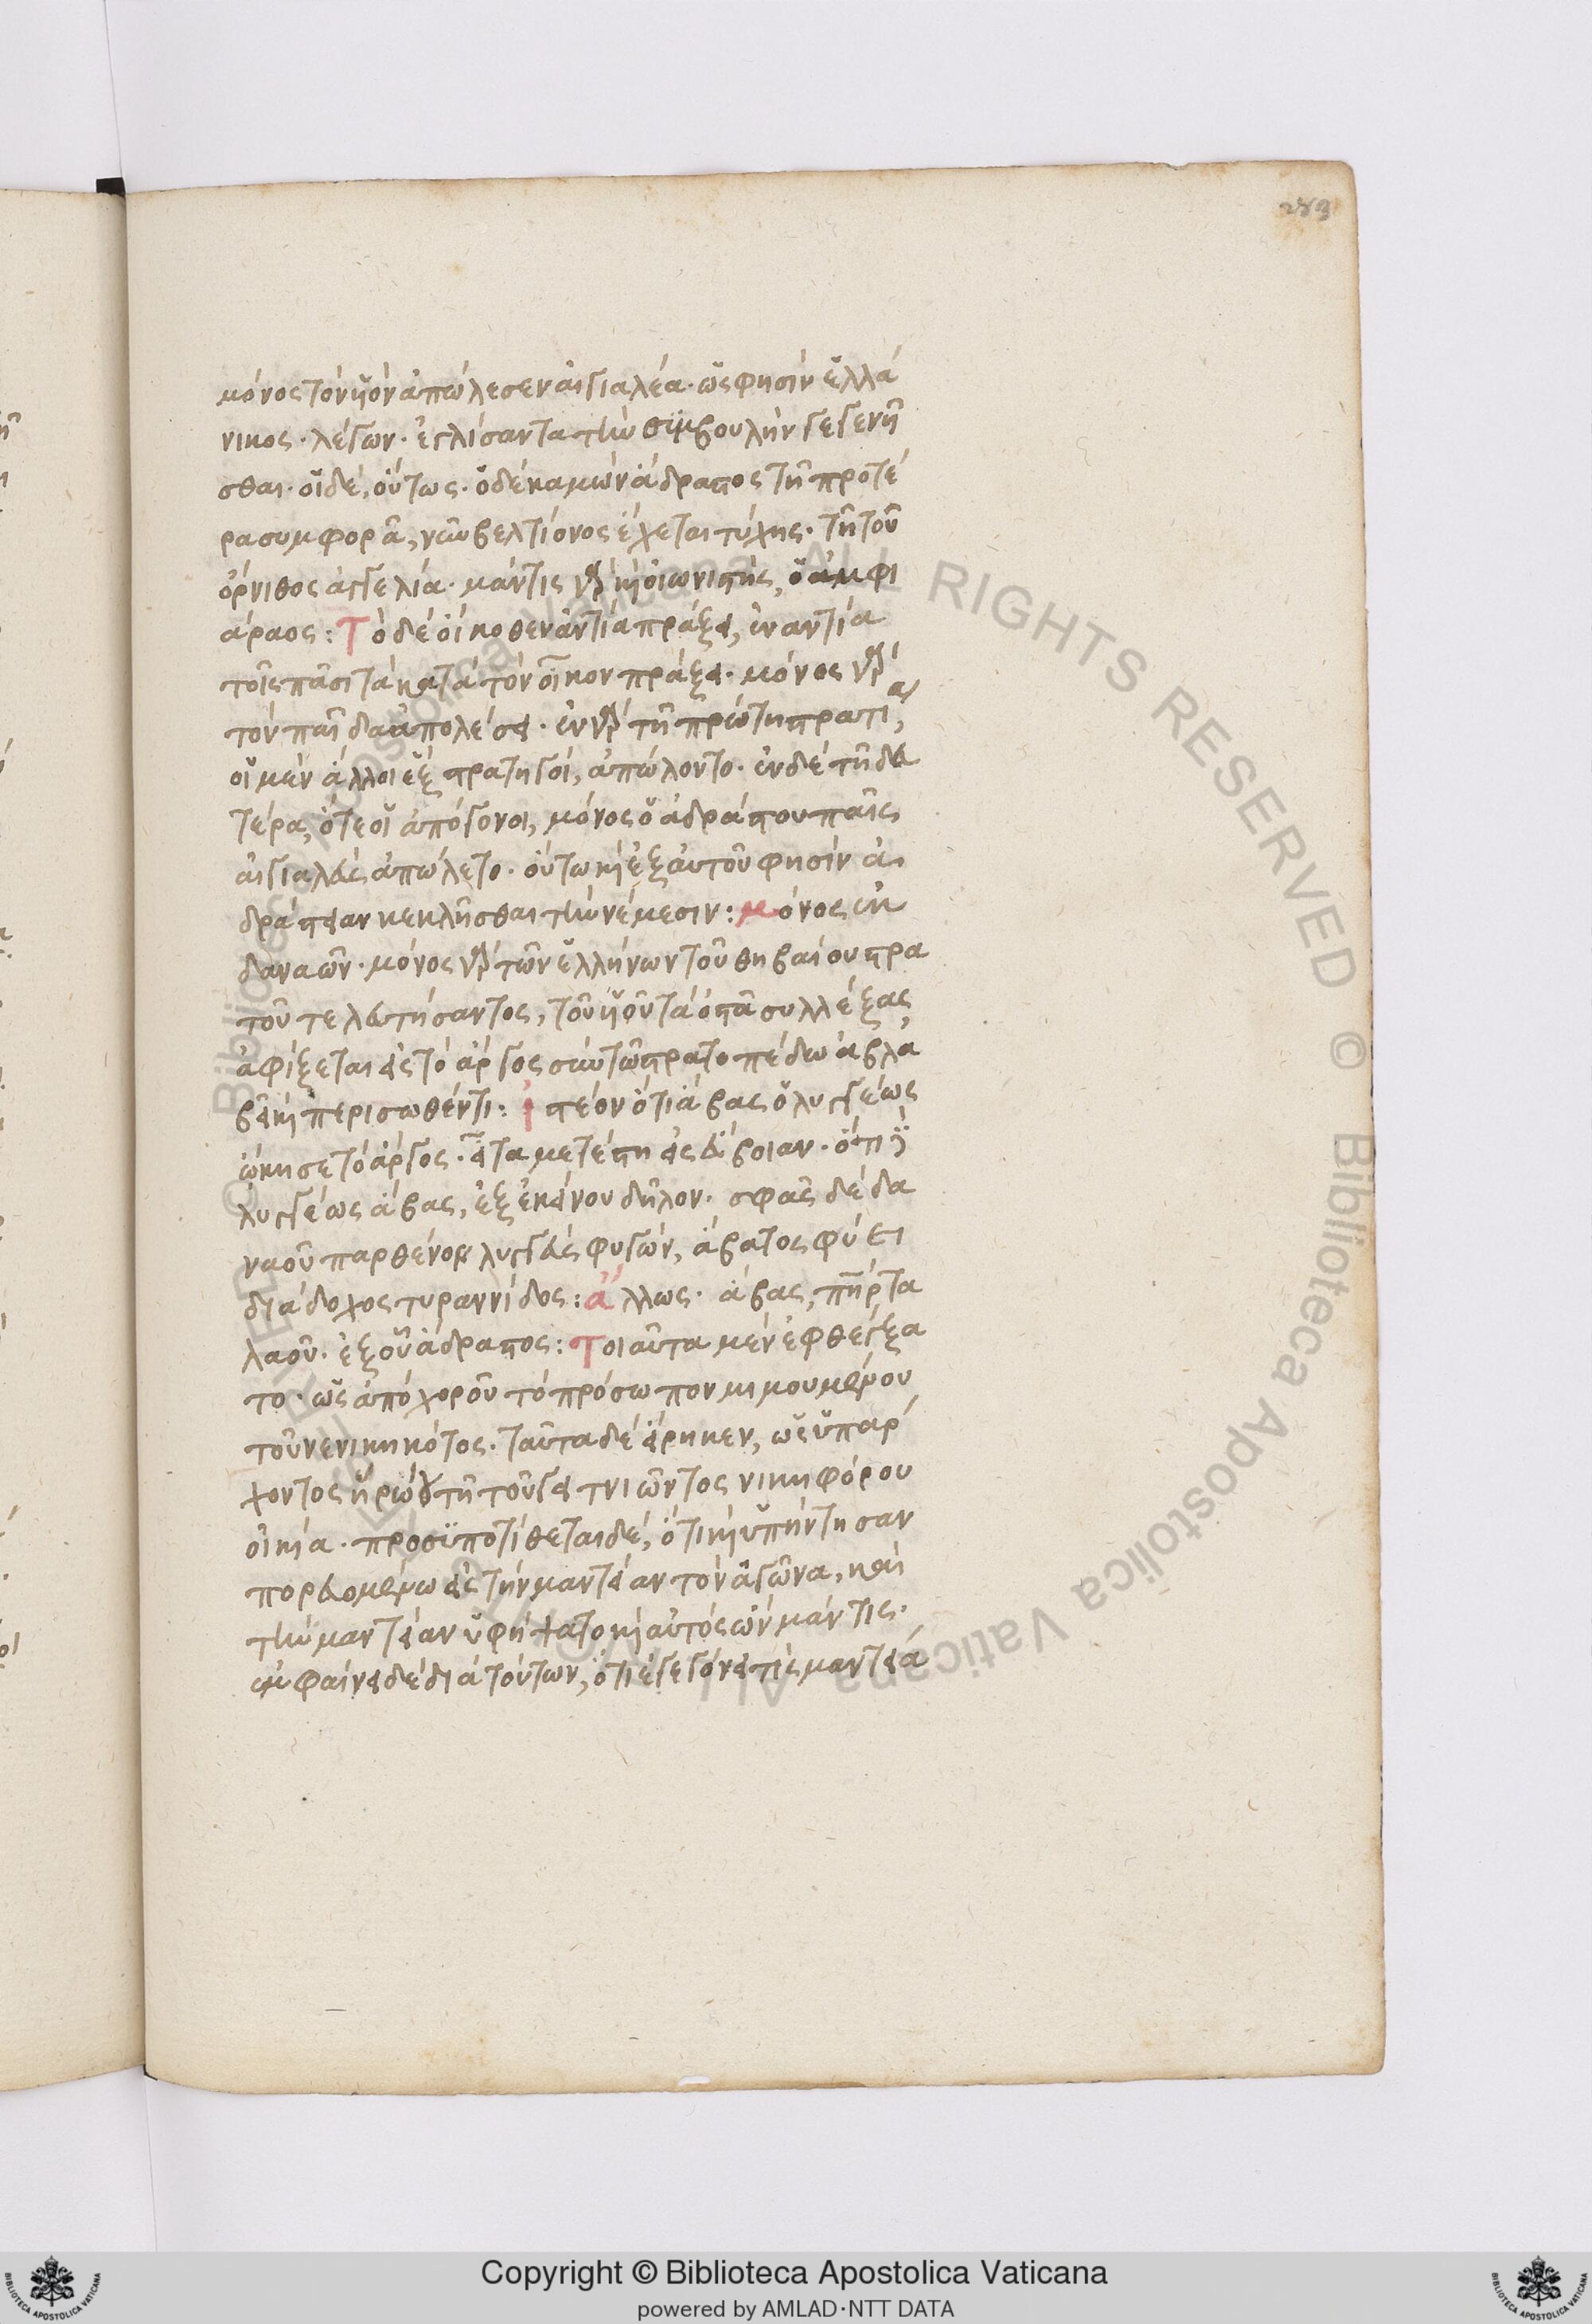 289
μόνος τὸν υἱὸν ἀπώλεσεν αἰγιαλέα· ὥς φησὶν ἑλλά
νικος· λέγων· ἐγλίσαντα τὴν συμβουλὴν γεγενῆ
σθαι· οἱ δὲ, οὕτως· ὁ δὲ καμὼν ἄδραστος τῇ προτέ
ρα συμφορᾷ, νῦν βελτίονος ἔχεται τύχης· τῇ τοῦ
ὄρνιθος ἀγγελία· μάντις γὰρ καὶ οἰωνιστὴς, ὁ ἀμφι
άραος: Τὸ δὲ οἴκοθεν ἀντία πράξει, ἐναντία
τοῖς πᾶσι τὰ κατὰ τὸν οἶκον πράξει· μόνος γὰρ
τὸν παῖδα ἀπολέσει· ἐν γὰρ τῇ πρώτη στρατιᾷ,
οἱ μὲν ἄλλοι ἓξ στρατηγοὶ, ἀπώλοντο· ἐν δὲ τῇ δευ
τέρα, ὅτε οἱ ἀπόγονοι, μόνος ὁ ἀδράστου παῖς
αἰγιαλεὺς ἀπώλετο· οὕτω καὶ ἐξ αὐτοῦ φησὶν ἀ
δράστειαν κεκλῆσθαι τὴν νέμεσιν: μόνος ἐκ
δαναῶν· μόνος γὰρ τῶν ἑλλήνων τοῦ θηβαίου στρα
τοῦ τελευτήσαντος, τοῦ υἱοῦ τὰ ὀστᾶ συλλέξας,
ἀφίξεται εἰς τὸ ἄργος σὺν τῷ στρατοπέδω ἀβλα
βεῖ καὶ περισωθέντι: ἰστέον ὅτι ἄβας ὁ λυγγέως
ᾤκησε τὸ ἄργος· εἶτα μετέστη εἰς εὔβοιαν· ὅτι ὁ
λυγγέως ἄβας, ἐξ ἐκείνου δῆλον· σφαῖς δὲ δα
ναοῦ παρθένον λυγγεὺς φυγὼν, ἄβαντος φύει
διάδοχος τυραννίδος: ἄλλως· ἄβας, πὴρ τα
λαοῦ· ἐξ οὗ ἄδραστος: Τοιαῦτα μὲν ἐφθέγξα
το· ὡς ἀπὸ χοροῦ τὸ πρόσωπον μιμουμένου
τοῦ νενικηκότος· ταῦτα δὲ εἴρηκεν, ὡς ὑπάρ
χοντος ἡρώου τῇ τοῦ γειτνιῶντος νικηφόρου
οἰκία· προσϋποτίθεται δὲ, ὅτι καὶ ὑπήντησαν
πορευομένω εἰς τὴν μαντείαν τὸν ἀγῶνα, καὶ
τὴν μαντείαν ὑφήψατο καὶ αὐτὸς ὢν μάντις·
ἐμφαίνει δὲ διὰ τούτων, ὅτι ἐγεγόνει τίς μαντεία